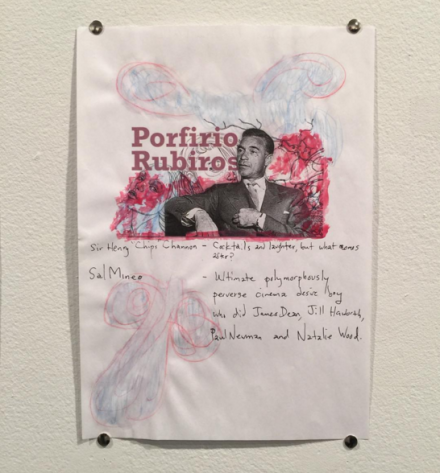 Porfirio
Rubiros
Sir Henry "Chips" Channon - Cocktails and laughter, but what comes
after?
Sal Mineo - Ultimate polymorphously
perverse cinema desire boy
who did James Dean, Jill Haworth,
Paul Newman and Natalie Wood.